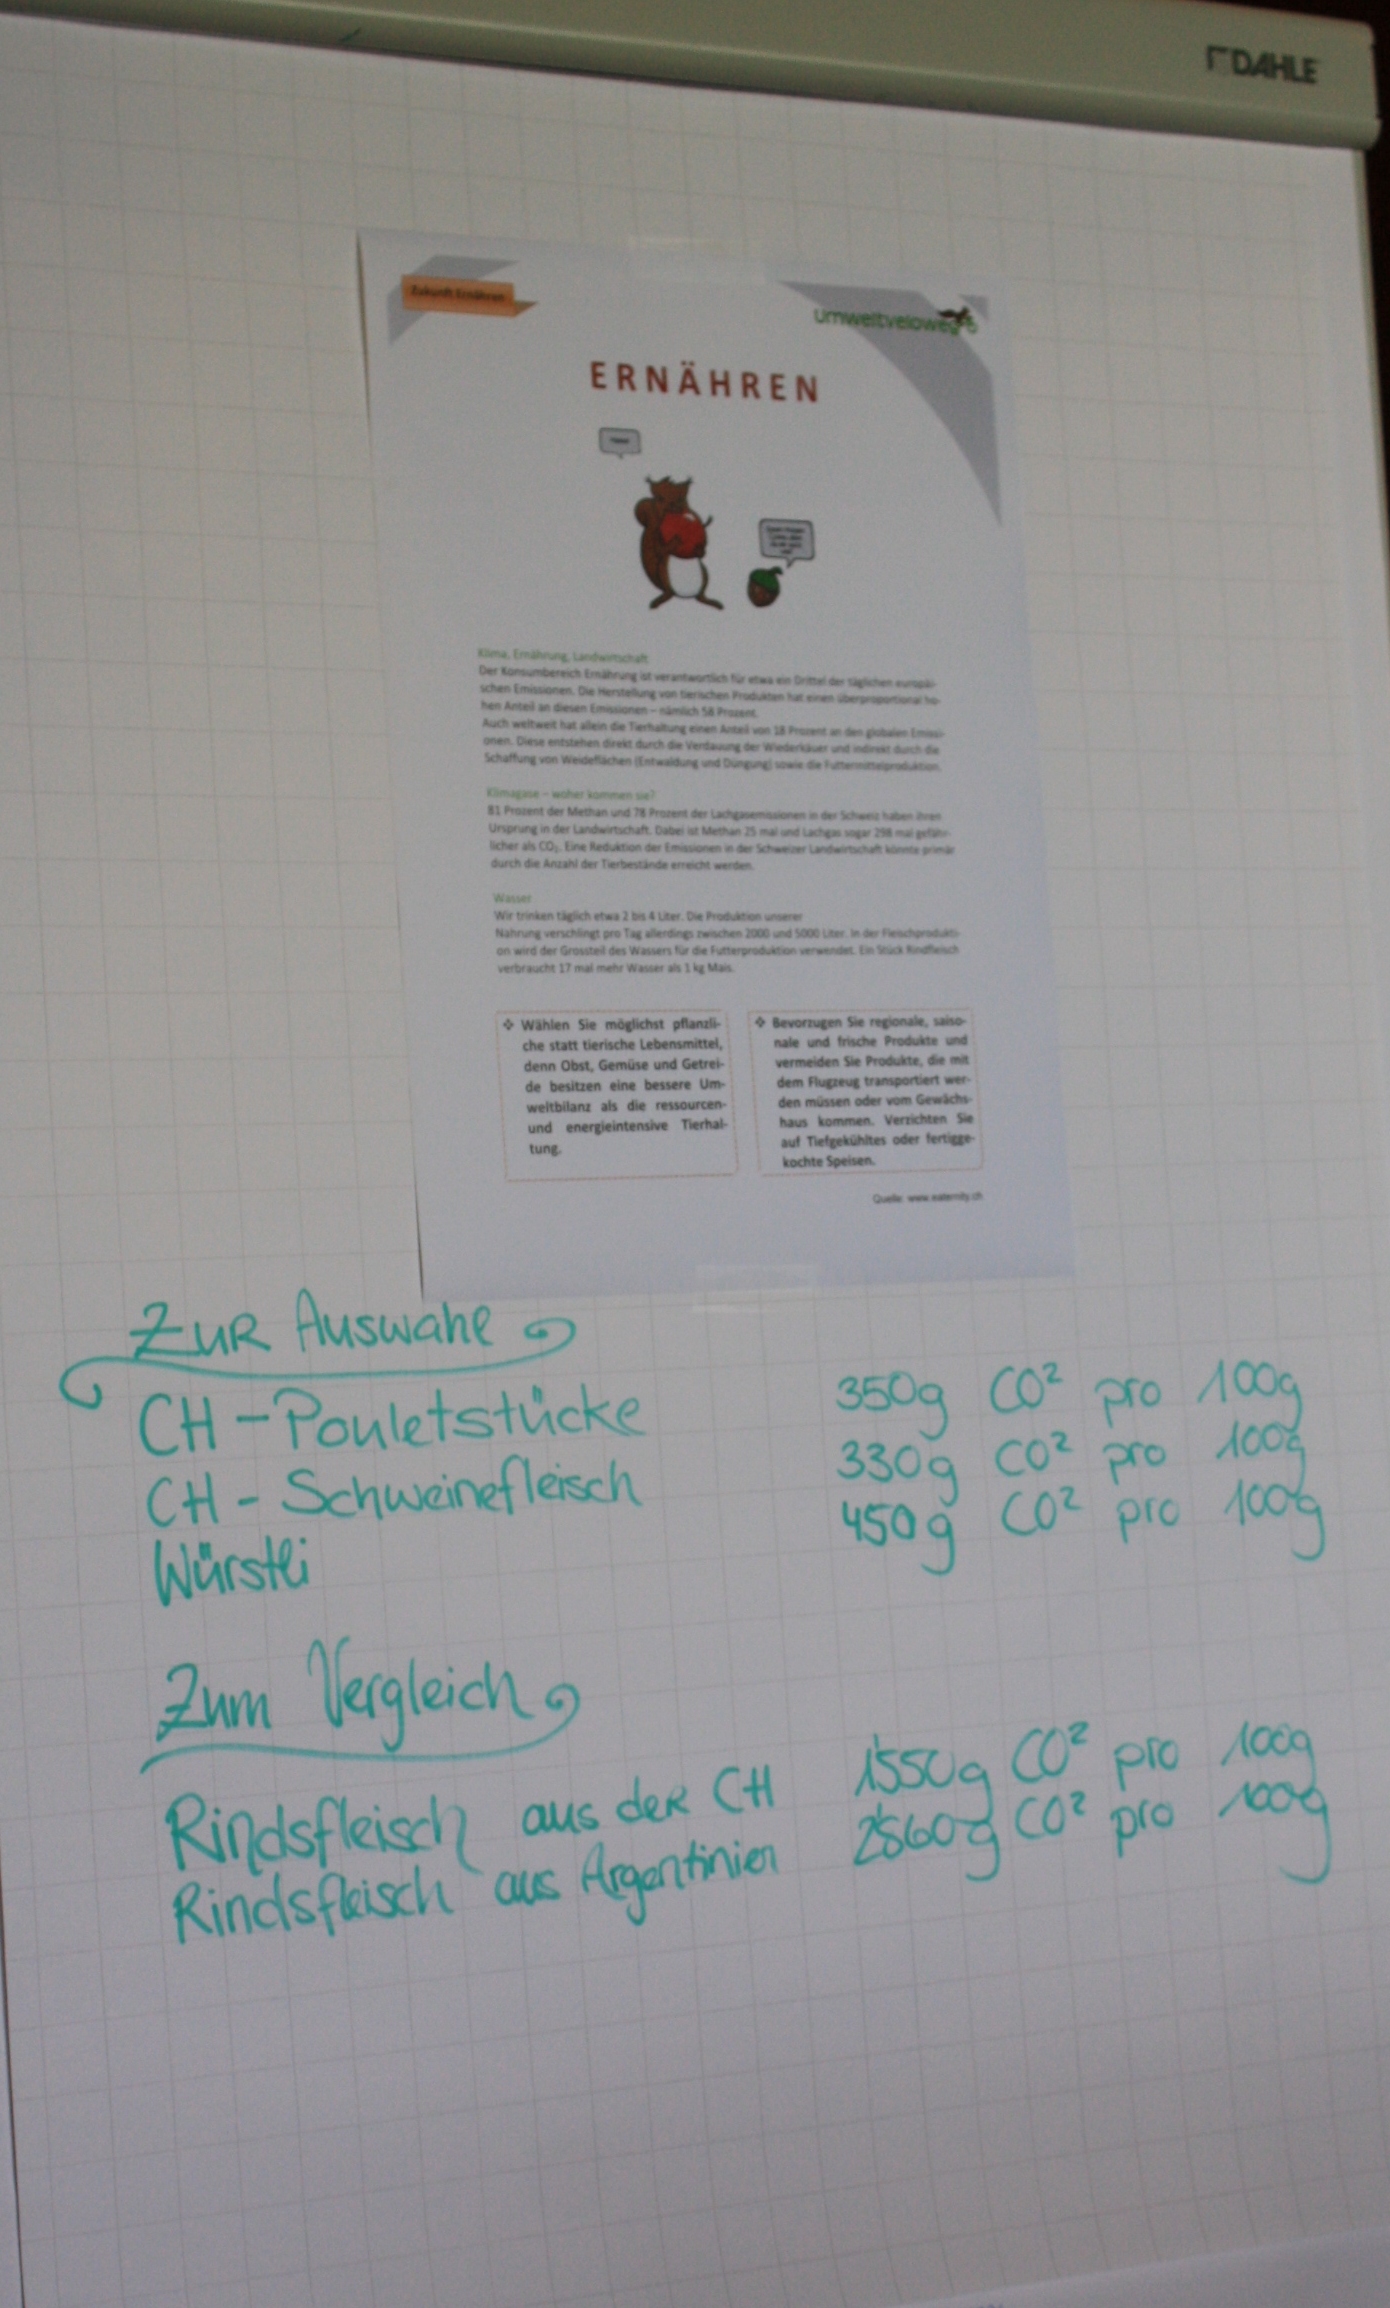 DAHLE
Zukunft Ernähren
umweltveloweg
ERNÄHREN
Klima, Ernährung, Landwirtschaft
Der Konsumbereich Ernährung ist verantwortlich für etwa ein Drittel der täglichen europäi-
schen Emissionen. Die Herstellung von tierischen Produkten hat einen überproportional ho-
hen Anteil an diesen Emissionen – nämlich 58 Prozent.
Auch weltweit hat allein die Tierhaltung einen Anteil von 18 Prozent an den globalen Emissi-
onen. Diese entstehen direkt durch die Verdauung der Wiederkäuer und indirekt durch die
Schaffung von Weideflächen (Entwaldung und Düngung) sowie die Futtermittelproduktion.
Klimagase – woher kommen sie?
81 Prozent der Methan und 78 Prozent der Lachgasemissionen in der Schweiz haben ihren
Ursprung in der Landwirtschaft. Dabei ist Methan 25 mal und Lachgas sogar 298 mal gefähr-
licher als CO₂. Eine Reduktion der Emissionen in der Schweizer Landwirtschaft könnte primär
durch die Anzahl der Tierbestände erreicht werden.
Wasser
Wir trinken täglich etwa 2 bis 4 Liter. Die Produktion unserer
Nahrung verschlingt pro Tag allerdings zwischen 2000 und 5000 Liter. In der Fleischprodukti-
on wird der Grossteil des Wassers für die Futterproduktion verwendet. Ein Stück Rindfleisch
verbraucht 17 mal mehr Wasser als 1 kg Mais.
❖ Wählen Sie möglichst pflanzli-
che statt tierische Lebensmittel,
denn Obst, Gemüse und Getrei-
de besitzen eine bessere Um-
weltbilanz als die ressourcen-
und energieintensive Tierhal-
tung.
❖ Bevorzugen Sie regionale, saiso-
nale und frische Produkte und
vermeiden Sie Produkte, die mit
dem Flugzeug transportiert wer-
den müssen oder vom Gewächs-
haus kommen. Verzichten Sie
auf Tiefgekühltes oder fertigge-
kochte Speisen.
Quelle: www.eaternity.ch
Zur Auswahl
CH-Pouletstücke 350g CO² pro 100g
CH-Schweinefleisch 330g CO² pro 100g
Würstli 450g CO² pro 100g
Zum Vergleich
Rindsfleisch aus der CH 1'550g CO² pro 100g
Rindsfleisch aus Argentinien 2'860g CO² pro 100g